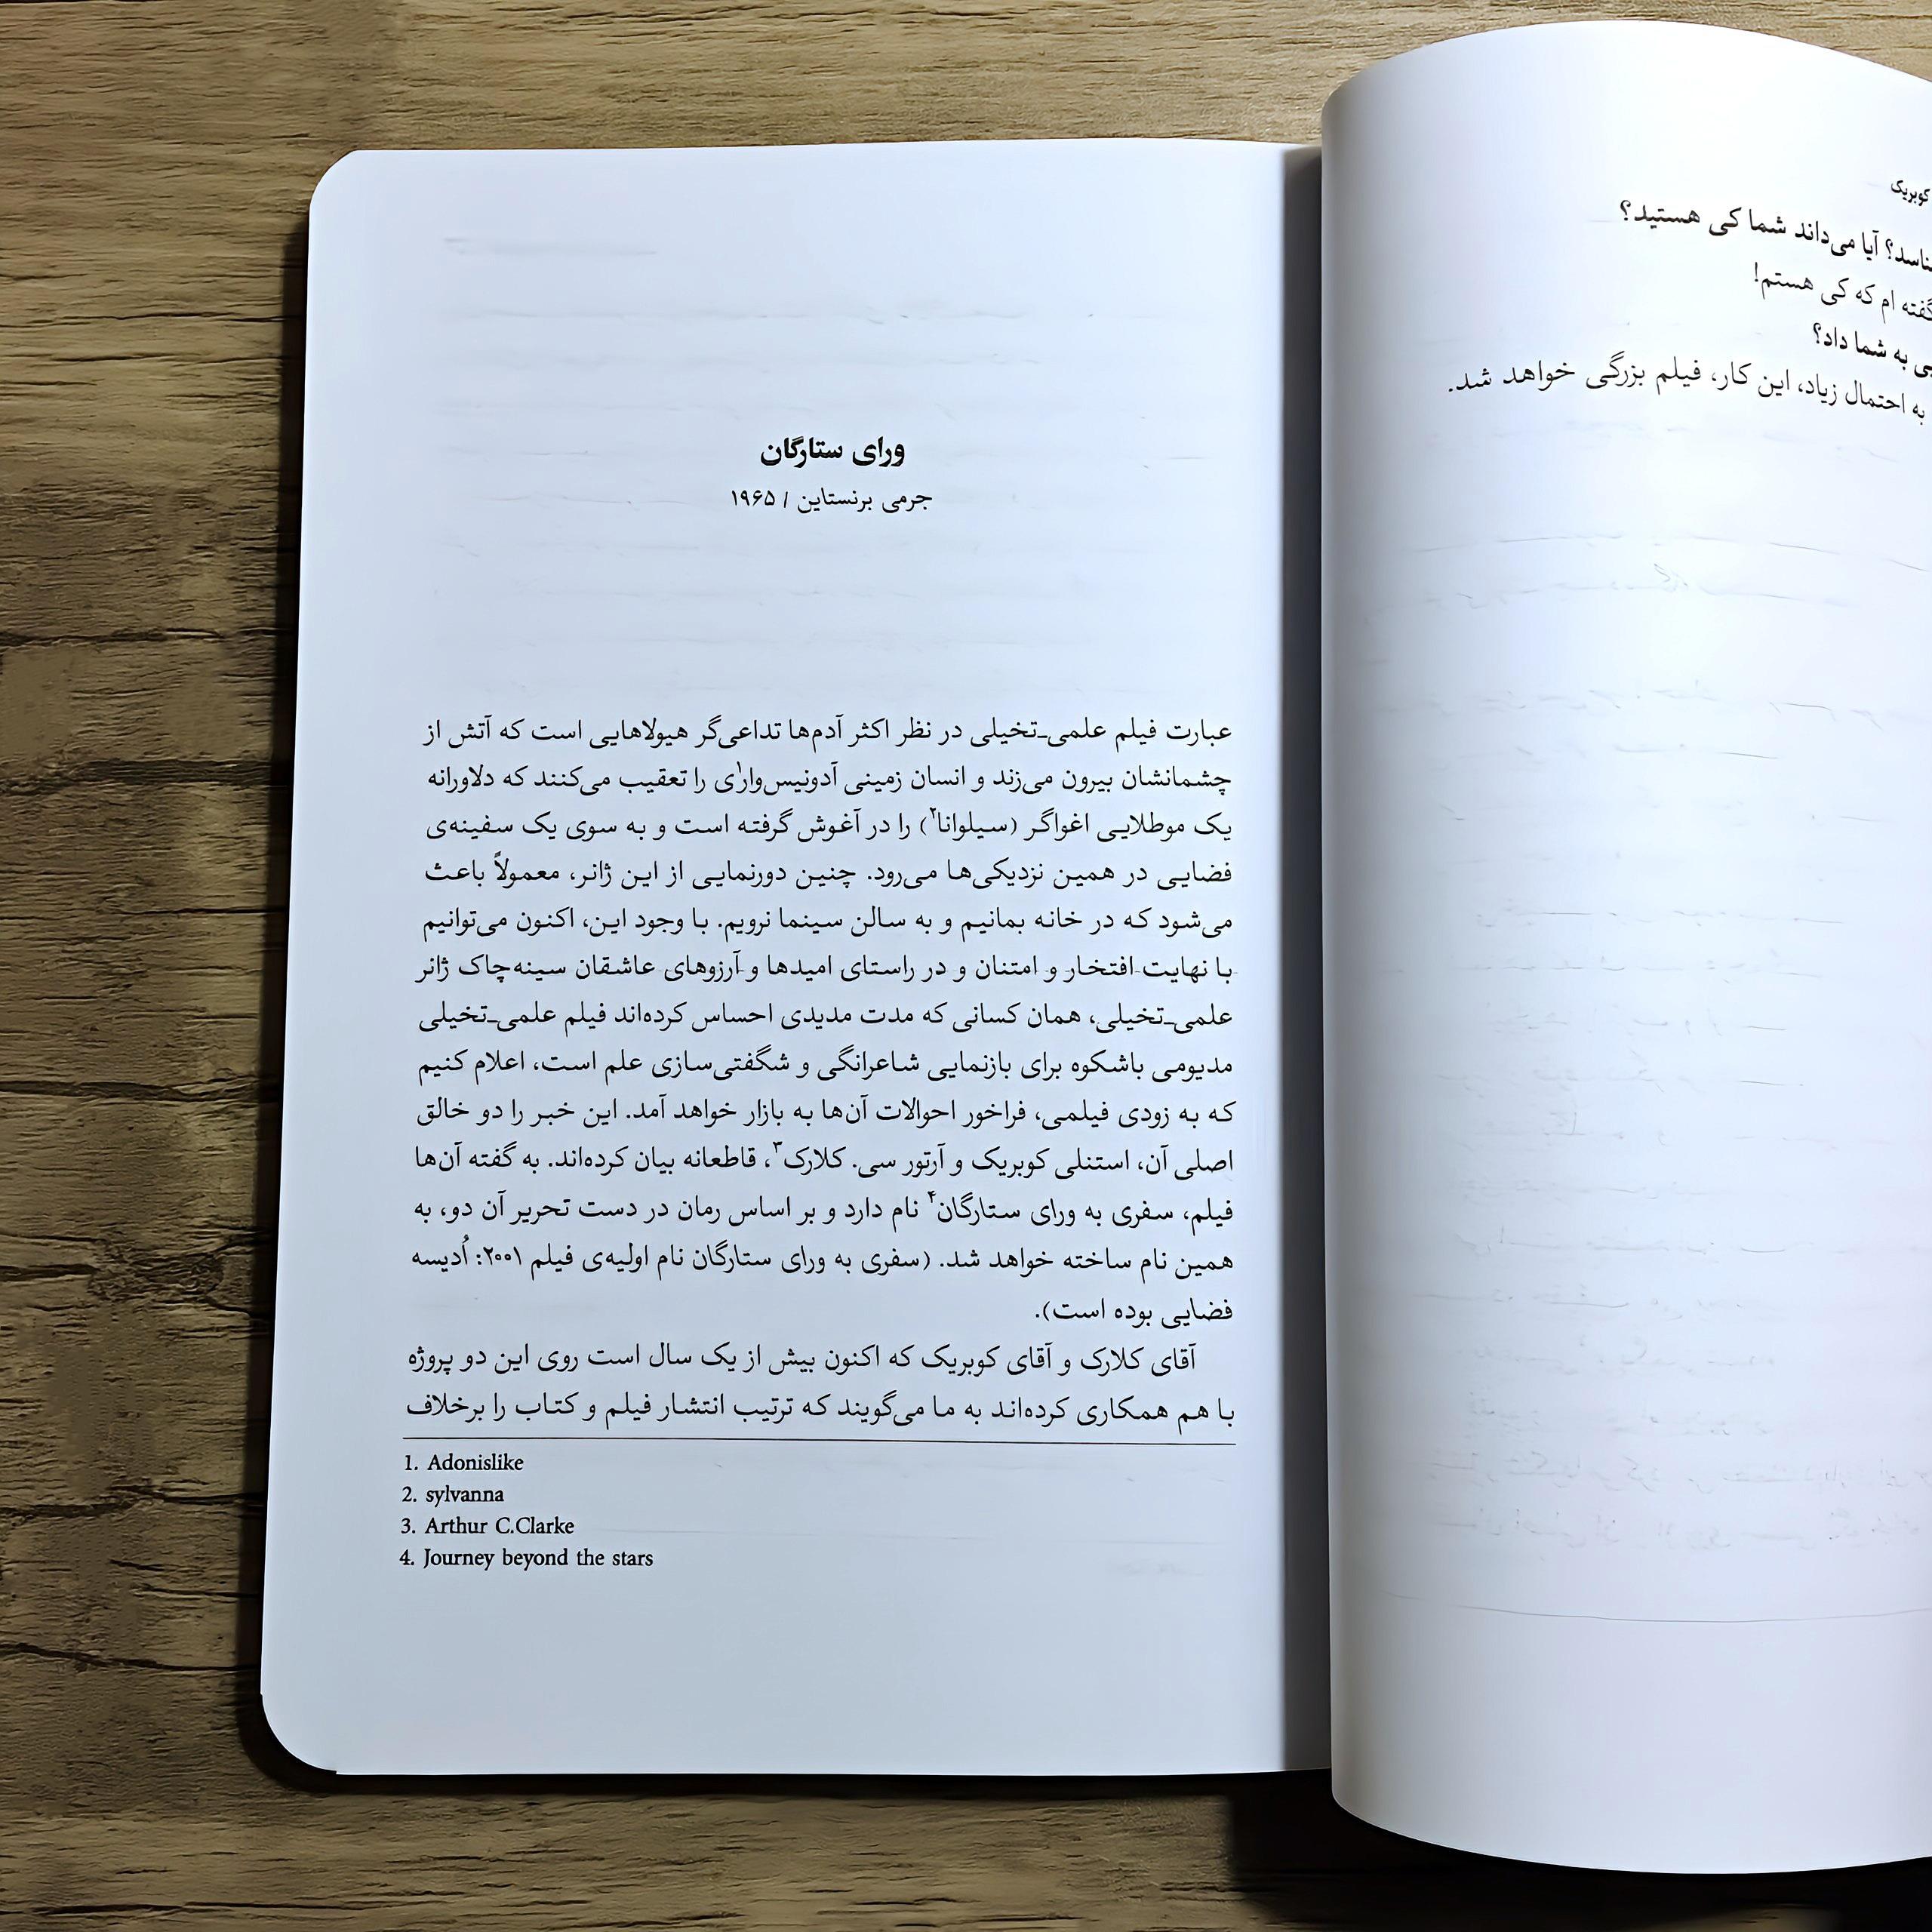 کوبریک
آیا می‌داند شما کی هستید؟
گفته ام که کی هستم!
به شما داد؟
به احتمال زیاد، این کار، فیلم بزرگی خواهد شد.
ورای ستارگان
جرمی برنستاین / ۱۹۶۵
عبارت فیلم علمی‌ـتخیلی در نظر اکثر آدم‌ها تداعی‌گر هیولاهایی است که آتش از
چشمانشان بیرون می‌زند و انسان زمینی آدونیس‌واری۱ را تعقیب می‌کنند که دلاورانه
یک موطلایی اغواگر (سیلوانا۲) را در آغوش گرفته است و به سوی یک سفینه‌ی
فضایی در همین نزدیکی‌ها می‌رود. چنین دورنمایی از این ژانر، معمولاً باعث
می‌شود که در خانه بمانیم و به سالن سینما نرویم. با وجود این، اکنون می‌توانیم
با نهایت افتخار و امتنان و در راستای امیدها و آرزوهای عاشقان سینه‌چاک ژانر
علمی‌ـتخیلی، همان کسانی که مدت مدیدی احساس کرده‌اند فیلم علمی‌ـتخیلی
مدیومی باشکوه برای بازنمایی شاعرانگی و شگفتی‌سازی علم است، اعلام کنیم
که به زودی فیلمی، فراخور احوالات آن‌ها به بازار خواهد آمد. این خبر را دو خالق
اصلی آن، استنلی کوبریک و آرتور سی. کلارک۳، قاطعانه بیان کرده‌اند. به گفته آن‌ها
فیلم، سفری به ورای ستارگان۴ نام دارد و بر اساس رمان در دست تحریر آن دو، به
همین نام ساخته خواهد شد. (سفری به ورای ستارگان نام اولیه‌ی فیلم ۲۰۰۱: اُدیسه
فضایی بوده است).
آقای کلارک و آقای کوبریک که اکنون بیش از یک سال است روی این دو پروژه
با هم همکاری کرده‌اند به ما می‌گویند که ترتیب انتشار فیلم و کتاب را برخلاف
1. Adonislike
2. sylvanna
3. Arthur C.Clarke
4. Journey beyond the stars